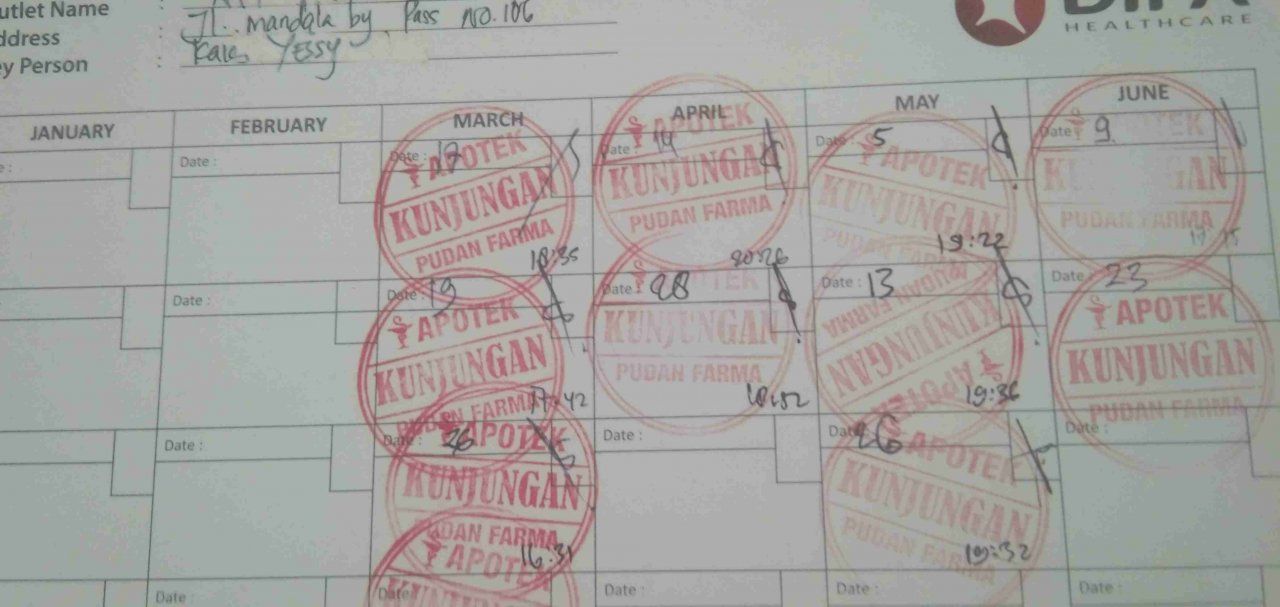 utlet Name :
ddress : Jl. mandala by Pass no. 106
ey Person : Kak Yessy
HEALTHCARE
JANUARY FEBRUARY MARCH APRIL MAY JUNE
Date : Date : Date : 14 Date : 5 Date : 9
APOTEK APOTEK APOTEK
KUNJUNGAN KUNJUNGAN KUNJUNGAN
PUDAN FARMA PUDAN FARMA PUDAN FARMA PUDAN FARMA
18:35 20:26 19:22
Date : Date : 19 Date : 28 Date : 13 Date : 23
APOTEK APOTEK
KUNJUNGAN KUNJUNGAN KUNJUNGAN KUNJUNGAN
PUDAN FARMA PUDAN FARMA PUDAN FARMA
17:42 19:36
Date : Date : 26 Date : Date : 26 Date :
APOTEK APOTEK
KUNJUNGAN KUNJUNGAN
PUDAN FARMA PUDAN FARMA
16:31 19:32
APOTEK
Date : Date : Date : Date : Date :